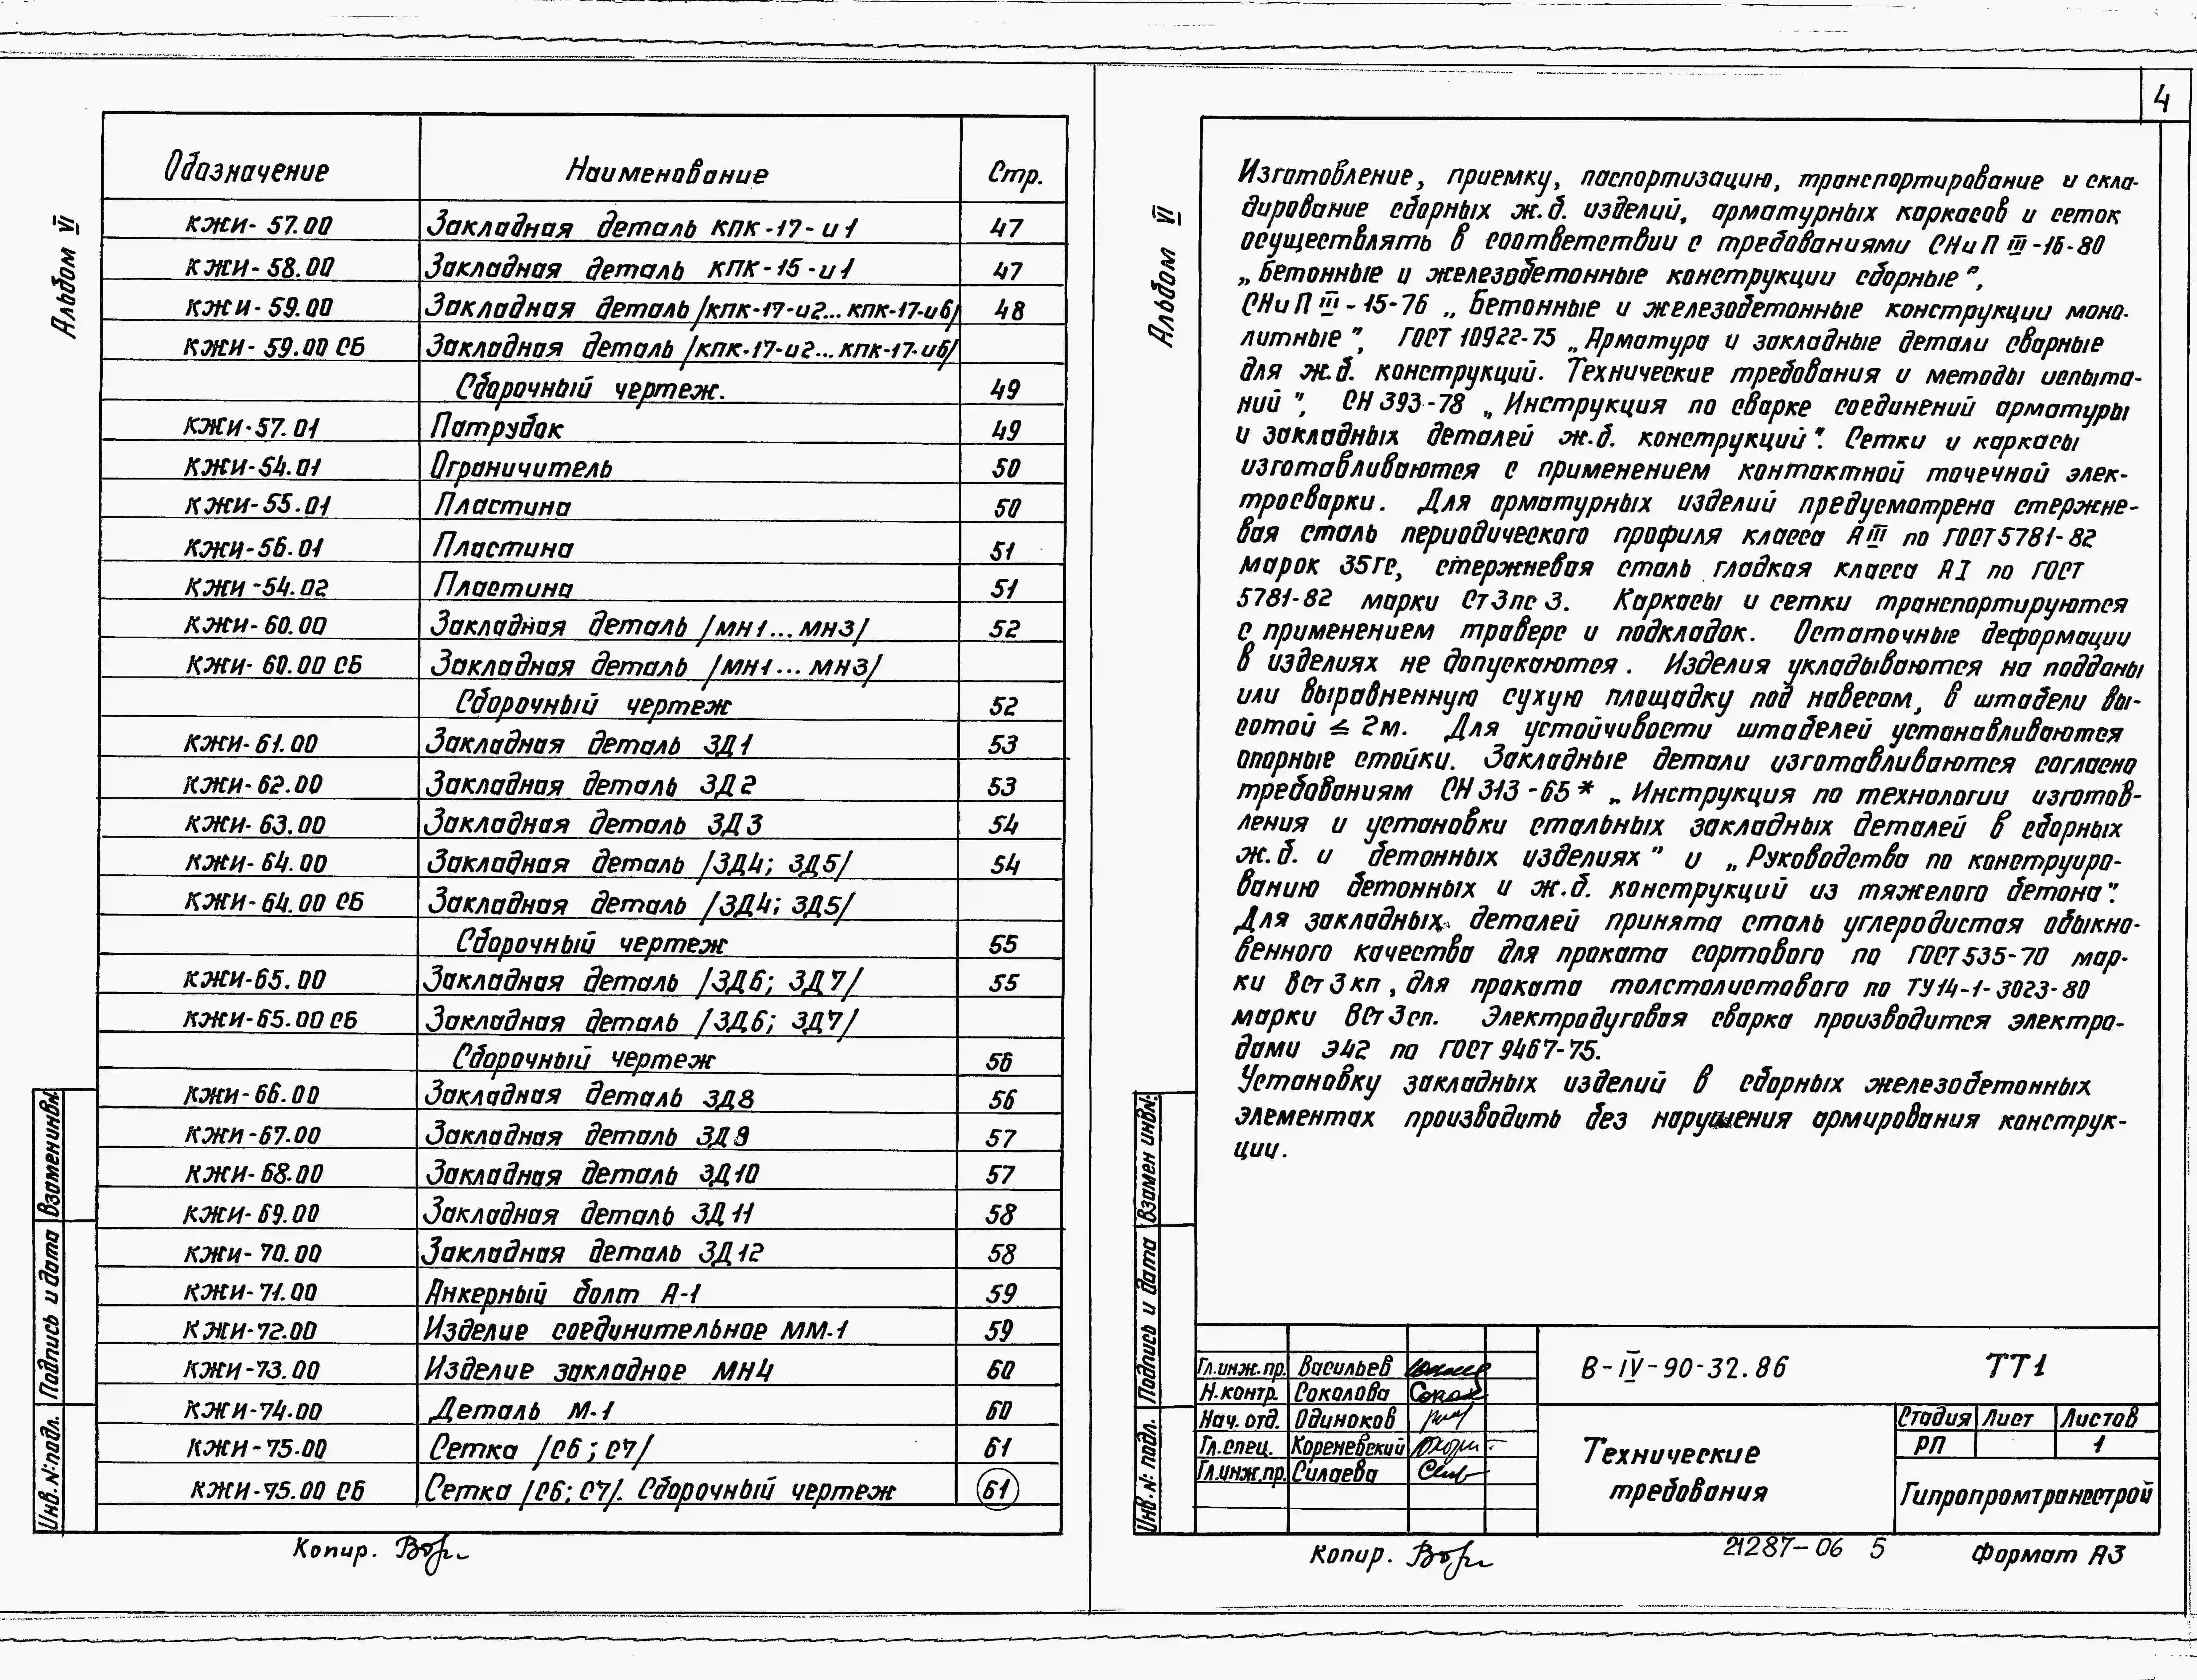 Альбом VI
Обозначение Наименование Стр.
КЖИ-57.00 Закладная деталь КПК-17-и1 47
КЖИ-58.00 Закладная деталь КПК-15-и1 47
КЖИ-59.00 Закладная деталь /КПК-17-и2...КПК-17-и6/ 48
КЖИ-59.00 СБ Закладная деталь /КПК-17-и2...КПК-17-и6/
Сборочный чертеж. 49
КЖИ-57.01 Патрубок 49
КЖИ-54.01 Ограничитель 50
КЖИ-55.01 Пластина 50
КЖИ-56.01 Пластина 51
КЖИ-54.02 Пластина 51
КЖИ-60.00 Закладная деталь /МН1...МН3/ 52
КЖИ-60.00 СБ Закладная деталь /МН1...МН3/
Сборочный чертеж 52
КЖИ-61.00 Закладная деталь ЗД1 53
КЖИ-62.00 Закладная деталь ЗД2 53
КЖИ-63.00 Закладная деталь ЗД3 54
КЖИ-64.00 Закладная деталь /ЗД4; ЗД5/ 54
КЖИ-64.00 СБ Закладная деталь /ЗД4; ЗД5/
Сборочный чертеж 55
КЖИ-65.00 Закладная деталь /ЗД6; ЗД7/ 55
КЖИ-65.00 СБ Закладная деталь /ЗД6; ЗД7/
Сборочный чертеж 56
КЖИ-66.00 Закладная деталь ЗД8 56
КЖИ-67.00 Закладная деталь ЗД9 57
КЖИ-68.00 Закладная деталь ЗД10 57
КЖИ-69.00 Закладная деталь ЗД11 58
КЖИ-70.00 Закладная деталь ЗД12 58
КЖИ-71.00 Анкерный болт А-1 59
КЖИ-72.00 Изделие соединительное ММ-1 59
КЖИ-73.00 Изделие закладное МН4 60
КЖИ-74.00 Деталь М-1 60
КЖИ-75.00 Сетка /С6; С7/ 61
КЖИ-75.00 СБ Сетка /С6; С7/. Сборочный чертеж 61
Взамен инв.№
Подпись и дата
Инв.№ подл.
Копир.
4
Альбом VI
Изготовление, приемку, паспортизацию, транспортирование и скла-
дирование сборных ж.б. изделий, арматурных каркасов и сеток
осуществлять в соответствии с требованиями СНиП III-16-80
„Бетонные и железобетонные конструкции сборные",
СНиП III-15-76 „Бетонные и железобетонные конструкции моно-
литные", ГОСТ 10922-75 „Арматура и закладные детали сварные
для ж.б. конструкций. Технические требования и методы испыта-
ний", СН 393-78 „Инструкция по сварке соединений арматуры
и закладных деталей ж.б. конструкций". Сетки и каркасы
изготавливаются с применением контактной точечной элек-
тросварки. Для арматурных изделий предусмотрена стержне-
вая сталь периодического профиля класса АIII по ГОСТ 5781-82
марок 35ГС, стержневая сталь гладкая класса АI по ГОСТ
5781-82 марки Ст3пс3. Каркасы и сетки транспортируются
с применением траверс и подкладок. Остаточные деформации
в изделиях не допускаются. Изделия укладываются на поддоны
или выравненную сухую площадку под навесом, в штабели вы-
сотой ≤ 2м. Для устойчивости штабелей устанавливаются
опорные стойки. Закладные детали изготавливаются согласно
требованиям СН 313-65* „Инструкция по технологии изготов-
ления и установки стальных закладных деталей в сборных
ж.б. и бетонных изделиях" и „Руководства по конструиро-
ванию бетонных и ж.б. конструкций из тяжелого бетона".
Для закладных деталей принята сталь углеродистая обыкно-
венного качества для проката сортового по ГОСТ 535-70 мар-
ки ВСт3кп, для проката толстолистового по ТУ14-1-3023-80
марки ВСт3сп. Электродуговая сварка производится электро-
дами Э42 по ГОСТ 9467-75.
Установку закладных изделий в сборных железобетонных
элементах производить без нарушения армирования конструк-
ции.
Взамен инв.№
Подпись и дата
Инв.№ подл.
Гл.инж.пр. Васильев
Н.контр. Соколова
Нач. отд. Одиноков
Гл.спец. Кореневский
Гл.инж.пр. Силаева
В-IV-90-32.86 ТТ1
Технические
требования
Стадия Лист Листов
РП 1
Гипропромтрансстрой
Копир.
21287-06 5
Формат А3